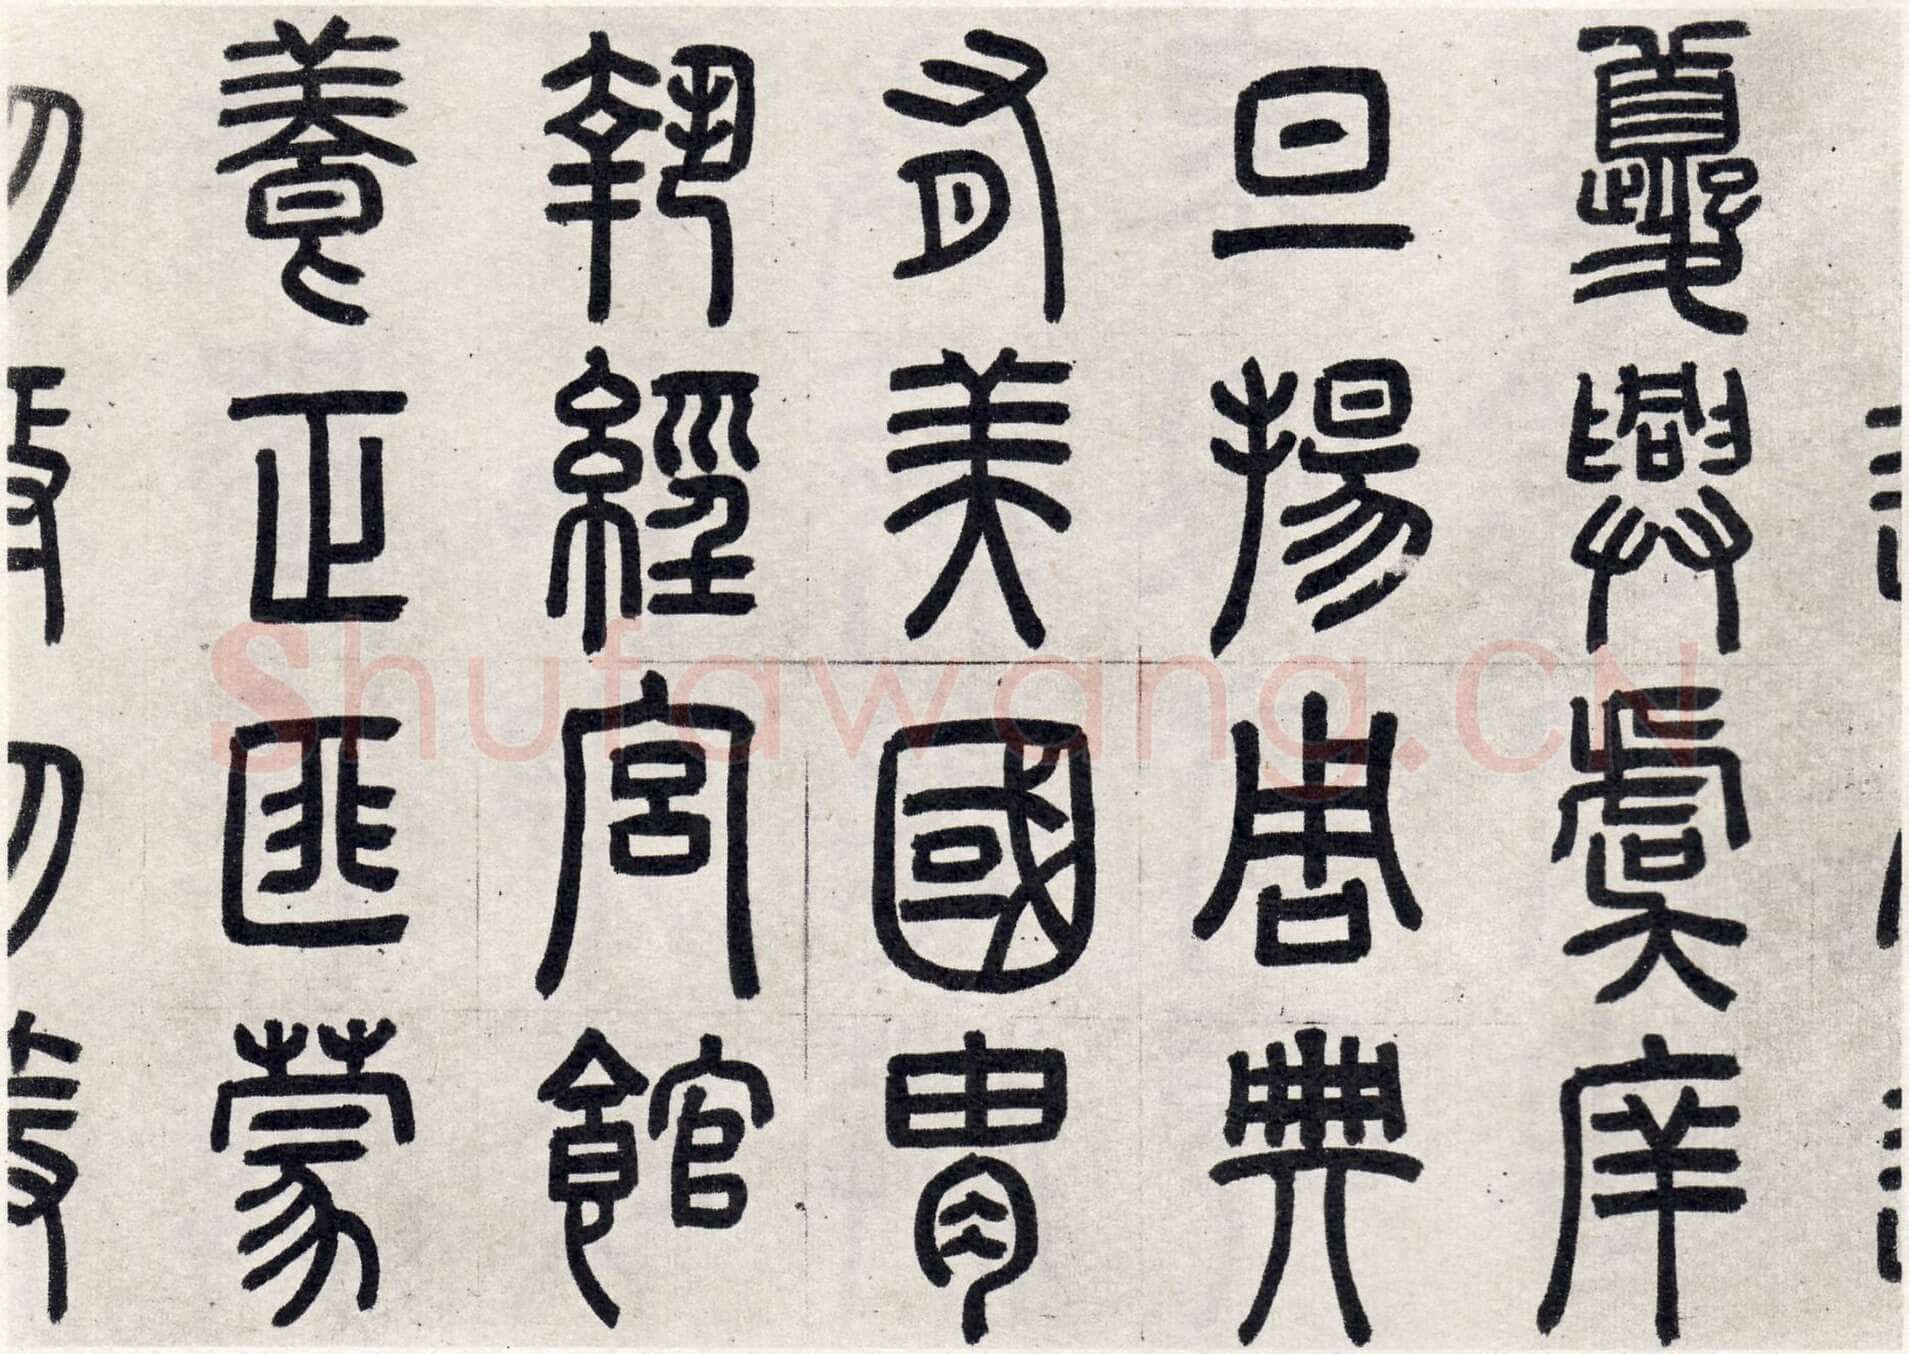 夔興虞庠
旦揚周典
有美國胄
執經宮館
養正匪蒙
Shufawang.CN